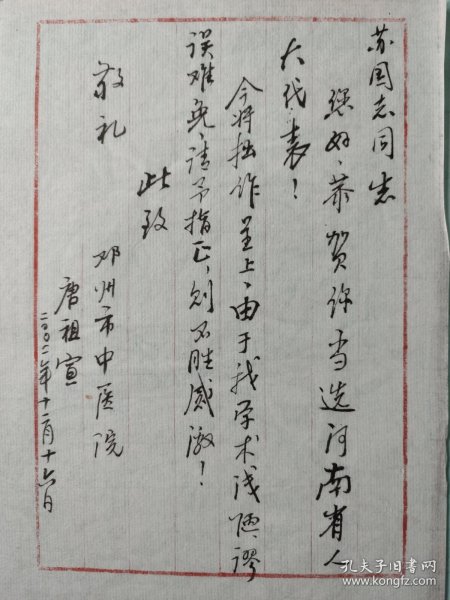 苏国志同志
您好、恭贺你当选河南省人
大代表！
今将拙作呈上、由于我学术浅陋、谬
误难免、请予指正、则不胜感激！
此致
敬礼
邓州市中医院
唐祖宣
二〇〇二年十二月十六日
孔夫子旧书网
book.kongfz.com